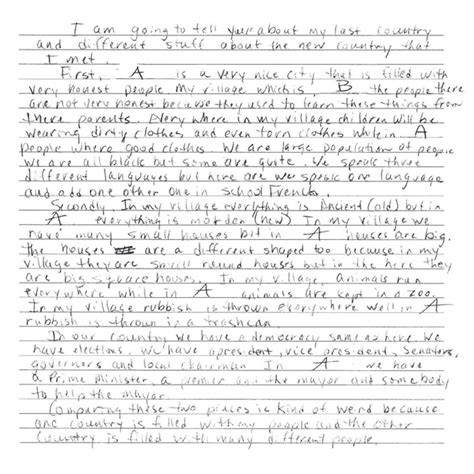 I am going to tell your about my last country
and different stuff about the new country that
I met.
First, A is a very nice city that is filled with
very honest people My village which is. B the people there
are not very honest because they used to learn these things from
there parents. Every where in my village children will be
wearing dirty clothes and even torn clothes while in A
people where good clothes. We are large population of people
we are all black but some are quite. We speak three
different languages but here are we speak one language
and add one other one in school French.
Secondly, In my village everything is Ancient (old) but in
A everything is morden (new) In my village we
have many small houses but in A houses are big.
the houses are a different shaped too because in my
village they are small round houses but in the here they
are big square houses. In my village, animals run
everywhere while in A animals are kept in a zoo.
In my village rubbish is thrown everywhere well in A
rubbish is thrown in a trashcan.
In our country we have a democracy same as here. We
have elections. We have a president, vice president, Senators,
governers and local chairman In A we have
a Prime Minister, a premier and the mayor and somebody
to help the mayor.
Comparing these two places is kind of weird because
one country is filled with my people and the other
country is filled with many different people.